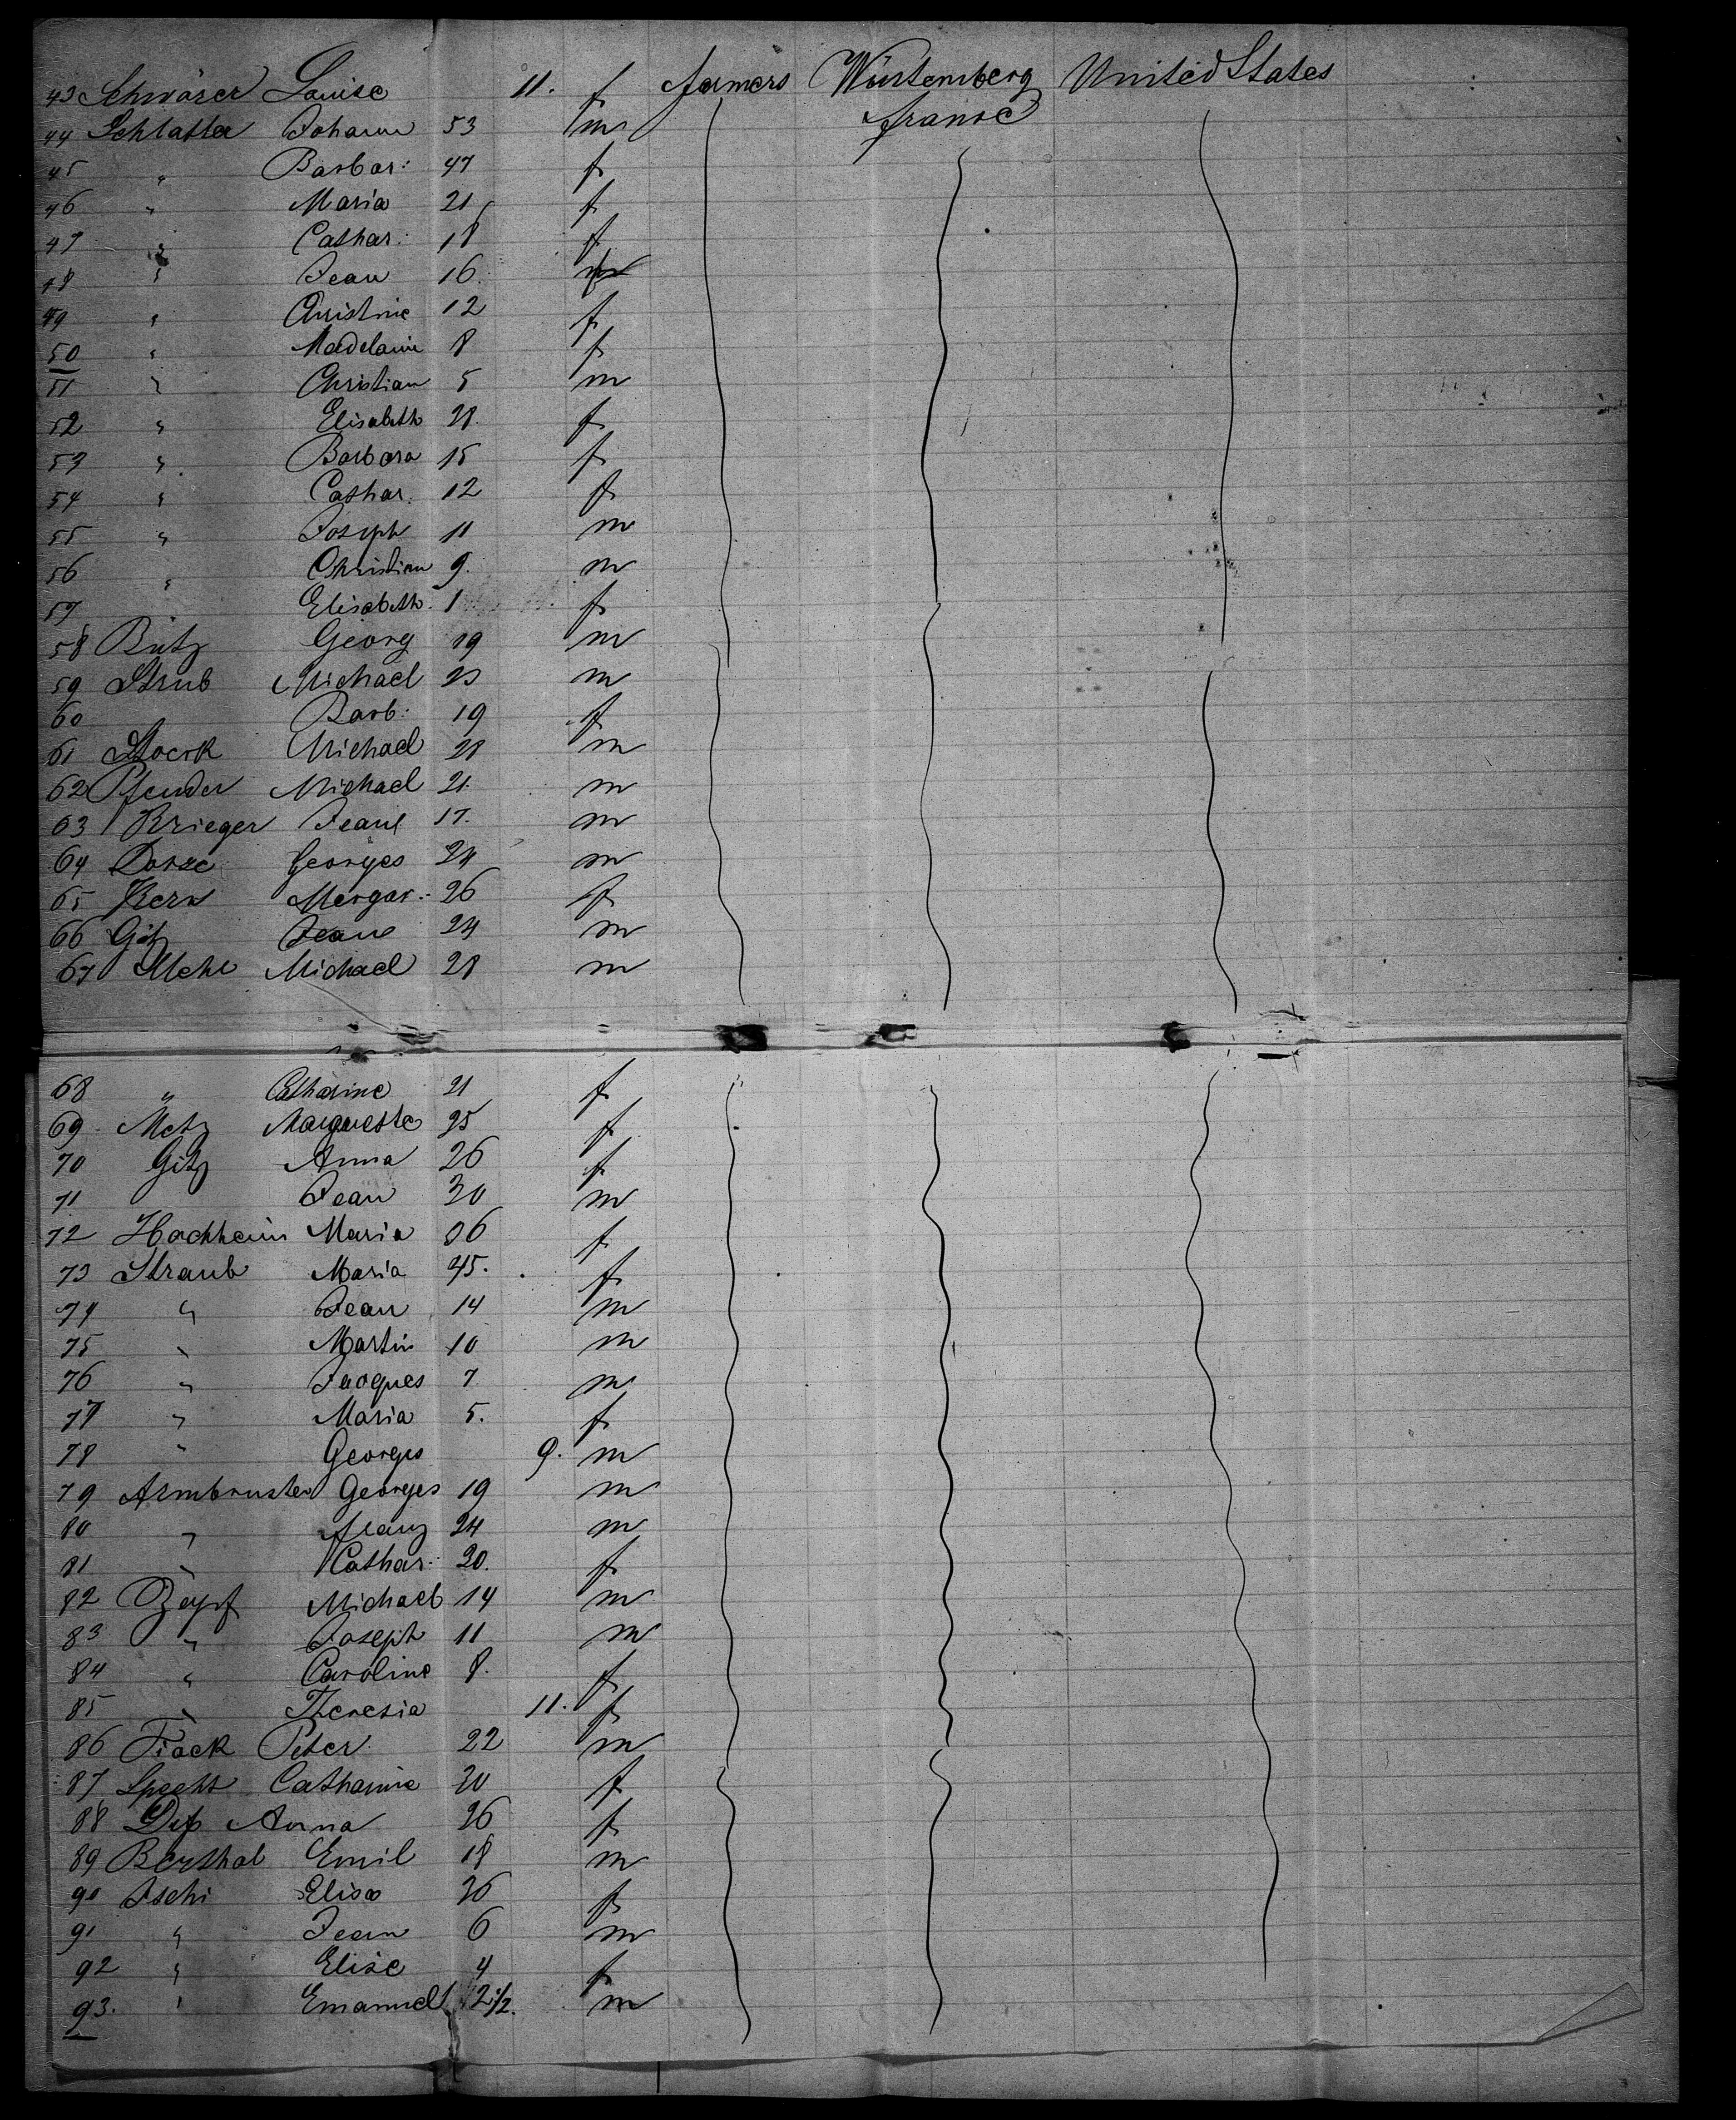 43 Schwörer Louise 11. f farmers Würtemberg United States
44 Schlatter Johann 53 m france
45 " Barbar: 47 f
46 " Maria 21 f
47 " Cathar: 18 f
48 " Jean 16.
49 " Christine 12 f
50 " Madelaine 8 f
51 " Christian 5 m
52 " Elisabeth 28. f
53 " Barbara 15 f
54 " Cathar. 12 f
55 " Joseph 11 m
56 " Christian 9. m
57 " Elisabeth 1 f
58 Butz Georg 19 m
59 Strub Michael 23 m
60 Barb: 19 f
61 Stock Michael 28 m
62 Pfender Michael 21. m
63 Krieger Jean 17. m
64 Georges 24 m
65 Kern Margar: 26 f
66 Götz Jean 24 m
67 Mehl Michael 28 m
68 " Catharine 21 f
69 Metz Marguerite 25 f
70 Götz Anna 26 f
71 Jean 30 m
72 Hochheim Maria 36 f
73 Straub Maria 45. f
74 " Jean 14 m
75 " Martin 10 m
76 " Jacques 7 m
77 " Maria 5. f
78 " Georges 9. m
79 Armbruster Georges 19 m
80 " Franz 24 m
81 " Cathar: 20. f
82 Zapf Michael 14 m
83 " Joseph 11 m
84 " Caroline 8. f
85 " Theresia 11. f
86 Fiack Peter 22 m
87 Specht Catharine 30 f
88 Anna 26 f
89 Berthal Emil 18 m
90 Ischi Elise 36 f
91 " Jean 6 m
92 " Elise 4 f
93. " Emanuel 2 1/2. m